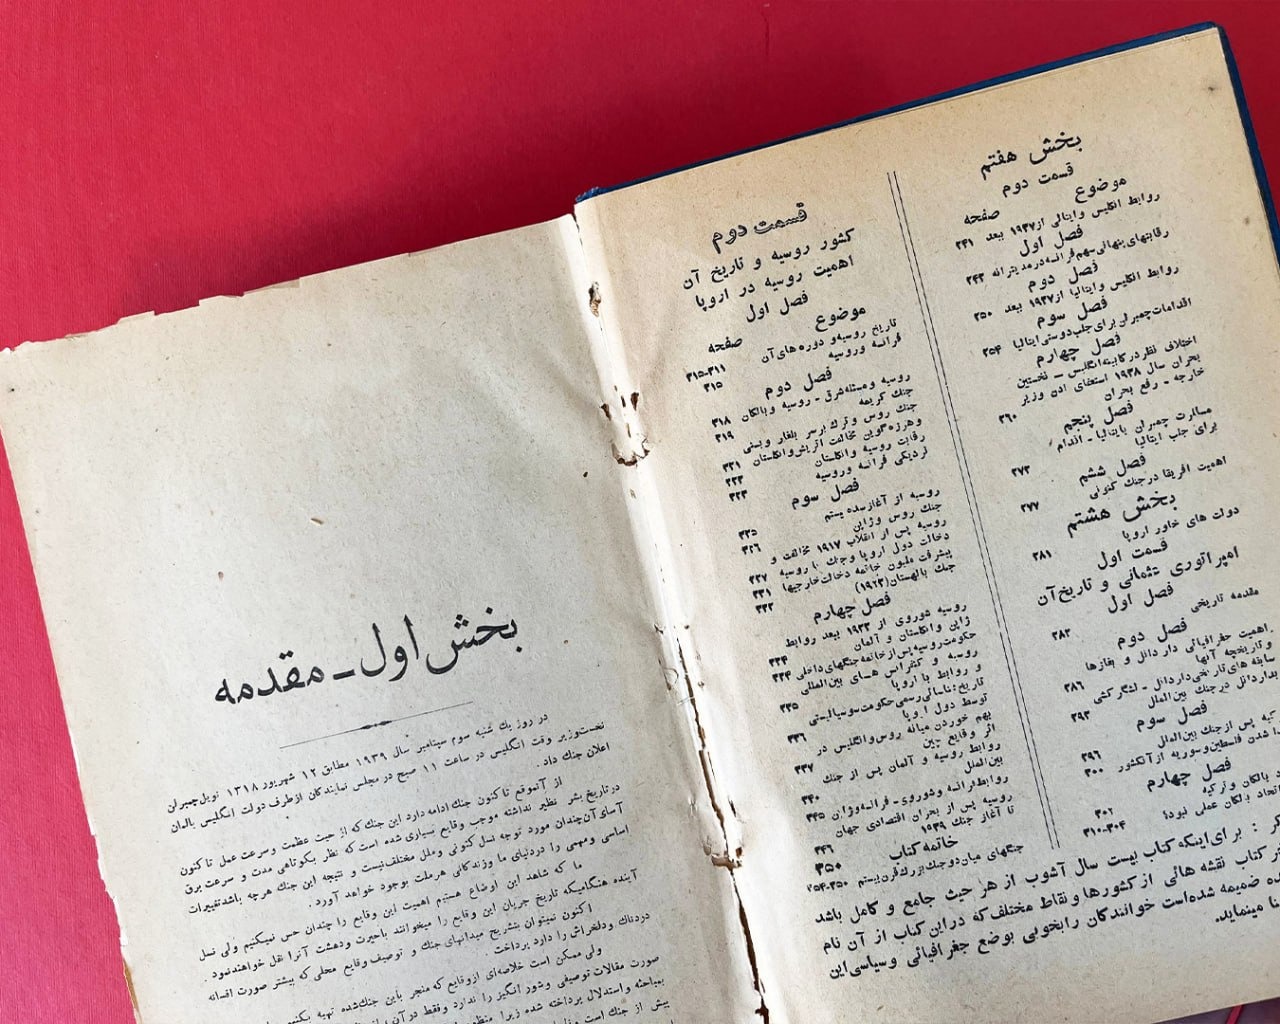 بخش هفتم
قسمت دوم
موضوع صفحه
روابط انگلیس و ایتالی از ۱۹۳۷ ببعد ۲۴۱
فصل اول
رقابتهای پنهانی سهم فرانسه در مدیترانه ۲۴۳
فصل دوم
روابط انگلیس و ایتالیا از ۱۹۳۷ ببعد ۲۵۰
فصل سوم
اقدامات چمبرلن برای جلب دوستی ایتالیا ۲۵۴
فصل چهارم
اختلاف نظر در کابینه انگلیس – نخستین
بحران سال ۱۹۳۸ استعفای ادن وزیر
خارجه – رفع بحران ۲۶۰
فصل پنجم
مسافرت چمبرلن بایتالیا – اقدام
برای جلب ایتالیا ۲۷۳
فصل ششم
اهمیت افریقا در جنك کنونی ۲۷۷
بخش هشتم
دولت های خاور اروپا
قسمت اول ۲۸۱
امپراتوری عثمانی و تاریخ آن
فصل اول
مقدمه تاریخی ۲۸۲
فصل دوم
اهمیت جغرافیائی داردانل و بغازها
و تاریخچه آنها ۲۸۶
سابقه های تاریخی داردانل – لشگر کشی
بداردانل در جنك بین الملل ۲۹۳
فصل سوم
کیه پس از جنك بین الملل ۲۹۶
شدن فلسطین و سوریه از آنکشور ۳۰۰
فصل چهارم
بالکان و ترکیه ۳۰۲
اتحاد بالکان عملی نبود؟ ۳۰۴-۳۱۰
قسمت دوم
کشور روسیه و تاریخ آن
اهمیت روسیه در اروپا
فصل اول
موضوع صفحه
تاریخ روسیه و دوره های آن ۳۱۱-۳۱۵
فرانسه و روسیه ۳۱۵
فصل دوم
روسیه و مسئله شرق – روسیه و بالکان ۳۱۸
جنك کریمه ۳۱۹
جنك روس و ترك بر سر بلغار و بسنی
و هرزه گوین مخالفت اتریش و انگلستان ۳۲۱
رقابت روسیه و انگلستان ۳۲۳
نزدیکی فرانسه و روسیه ۳۲۴
فصل سوم
روسیه از آغاز سده بیستم ۳۲۵
جنك روس و ژاپن ۳۲۶
روسیه پس از انقلاب ۱۹۱۷ مخالفت و
دخالت دول اروپا و جنك با روسیه ۳۲۷
پیشرفت ملیون خاتمه دخالت خارجیها ۳۳۱
جنك بالهستان (۱۹۲۳) ۳۳۲
فصل چهارم
روسیه دوروی از ۱۹۳۳ ببعد روابط
ژاپن و انگلستان و آلمان ۳۳۴
حکومت روسیه پس از خاتمه جنگهای داخلی ۳۳۴
روسیه و کنفرانس های بین المللی
و روابط با اروپا ۳۳۵
تاریخ شناسائی رسمی حکومت سوسیالیستی
توسط دول اروپا ۳۳۶
بهم خوردن میانه روس و انگلیس در
اثر وقایع چین ۳۳۷
روابط روسیه و آلمان پس از جنك
بین الملل ۳۴۰
روابط فرانسه و شوروی – فرانسه و ژاپن ۳۴۵
روسیه پس از بحران اقتصادی جهان
تا آغاز جنك ۱۹۳۹ ۳۴۶
خاتمه کتاب ۳۵۰
جنگهای میان دو جنك بزرك قرن بیستم ۳۵۰-۳۵۴
: برای اینکه کتاب بیست سال آشوب از هر حیث جامع و کامل باشد
کتاب نقشه هائی از کشورها و نقاط مختلف که در این کتاب از آن نام
ده ضمیمه شده است خوانندگان را بخوبی بوضع جغرافیائی و سیاسی این
نا مینماید.
بخش اول – مقدمه
در روز یك شنبه سوم سپتامبر سال ۱۹۳۹ مطابق ۱۲ شهریور ۱۳۱۸ نویل چمبرلن
نخست وزیر وقت انگلیس در ساعت ۱۱ صبح در مجلس نمایندگان از طرف دولت انگلیس بالمان
اعلان جنك داد.
از آنموقع تاکنون جنك ادامه دارد این جنك که از حیث عظمت و سرعت عمل تاکنون
در تاریخ بشر نظیر نداشته موجب وقایع بسیاری شده است که نظر بکوتاهی مدت و سرعت برق
آسای آن چندان مورد توجه نسل کنونی و ملل مختلف نیست و نتیجه این جنك هرچه باشد تغییرات
اساسی و مهمی را در دنیای ما و زندگانی هر ملت بوجود خواهد آورد.
ما که شاهد این اوضاع هستیم اهمیت این وقایع را چندان حس نمیکنیم ولی نسل
آینده هنگامیکه تاریخ جریان این وقایع را میخوانند با حیرت و دهشت آنرا نقل خواهند نمود.
اکنون نمیتوان بتشریح میدانهای جنك و توصیف وقایع محلی که بیشتر صورت افسانه
دردناك و دلخراش را دارد پرداخت.
ولی ممکن است خلاصه‌ای از وقایع که منجر باین جنك شده تهیه بکنیم
صورت مقالات توصیفی و شور انگیز را ندارد و فقط در آن
بمباحثه و استدلال پرداخته شده زیرا منظور
بیش از جنك است